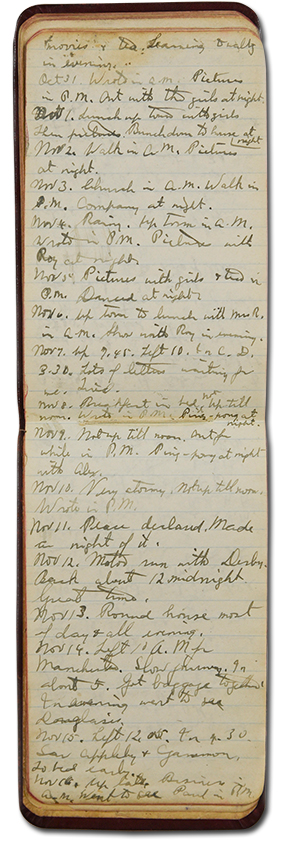 movies & tea. Learning to waltz
in evening.
Oct 31. Wrote in a.m. Pictures
in P.M. Out with the girls at night.
Nov 1. Lunch up town with girls
then pictures. Bunch down to house at night
Nov 2. Walk in A.M. Pictures
at night.
Nov 3. Church in A.M. Walk in
P.M. Company at night.
Nov 4. Rainy. Up town in A.M.
Wrote in P.M. Pictures with
Roy at night.
Nov 5. Pictures with girls & tea in
P.M. Danced at night.
Nov 6. Up town to lunch with Mrs R.
in A.M. Show with Roy in evening.
Nov 7. Up 9.45. Left 10. In C. D.
3.30. Lots of letters waiting for
me. Tired.
Nov 8. Breakfast in bed, up till
noon. Wrote in P.M. Ping-pong at
night.
Nov 9. Not up till noon. Out for
while in P.M. Ping-pong at night
with Alex.
Nov 10. Very stormy. Not up till noon.
Wrote in P.M.
Nov 11. Peace declared. Made
a night of it.
Nov 12. Motor run with Derby.
Back about 12 midnight
Great time.
Nov 13. Round house most
of day & all evening.
Nov 14. Left 10 A.M. for
Manchester. Slow journey. In
about 5. Got baggage together.
In evening went to see
Douglasie.
Nov 15. Left 12. In 4.30.
Saw Appleby & Gammon,
to bed early.
Nov 16. Up late. Business in
A.M. Went to see Paul in P.M.